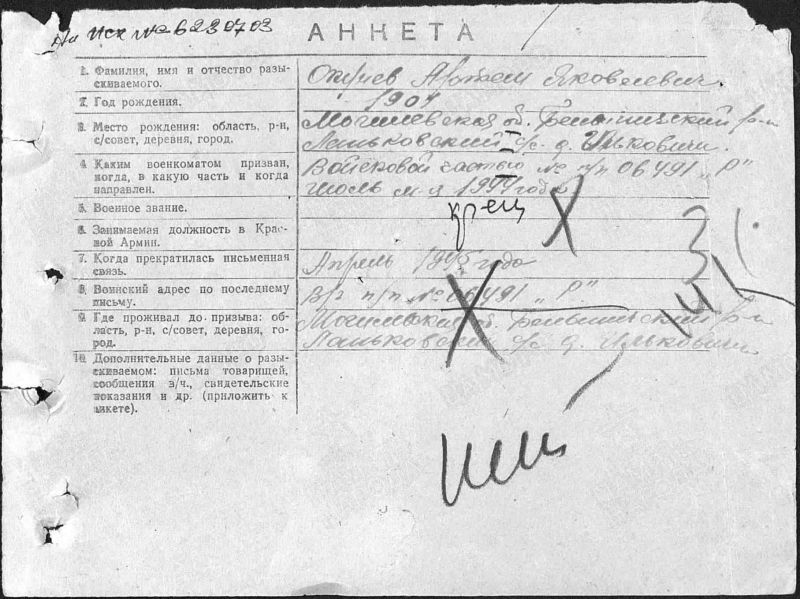 На исх № 6230703
АНКЕТА
1. Фамилия, имя и отчество разы-
скиваемого.
Яковлевич
2. Год рождения.
1907
3. Место рождения: область, р-н,
с/совет, деревня, город.
Могилевская об. Белыничский р-н
Ланьковский с/с д. Ильковичи
4. Каким военкоматом призван,
когда, в какую часть и когда
направлен.
Войсковой частью № п/п 06491 „Р"
июль м-я 1944 года
5. Военное звание.
6. Занимаемая должность в Крас-
ной Армии.
7. Когда прекратилась письменная
связь.
Апрель 1945 года
8. Воинский адрес по последнему
письму.
п/п № 06491 „Р"
9. Где проживал до призыва: об-
ласть, р-н, с/совет, деревня, го-
род.
Могилевская об. Белыничский р-н
Ланьковский с/с д. Ильковичи
10. Дополнительные данные о разы-
скиваемом: письма товарищей,
сообщения в/ч., свидетельские
показания и др. (приложить к
анкете).